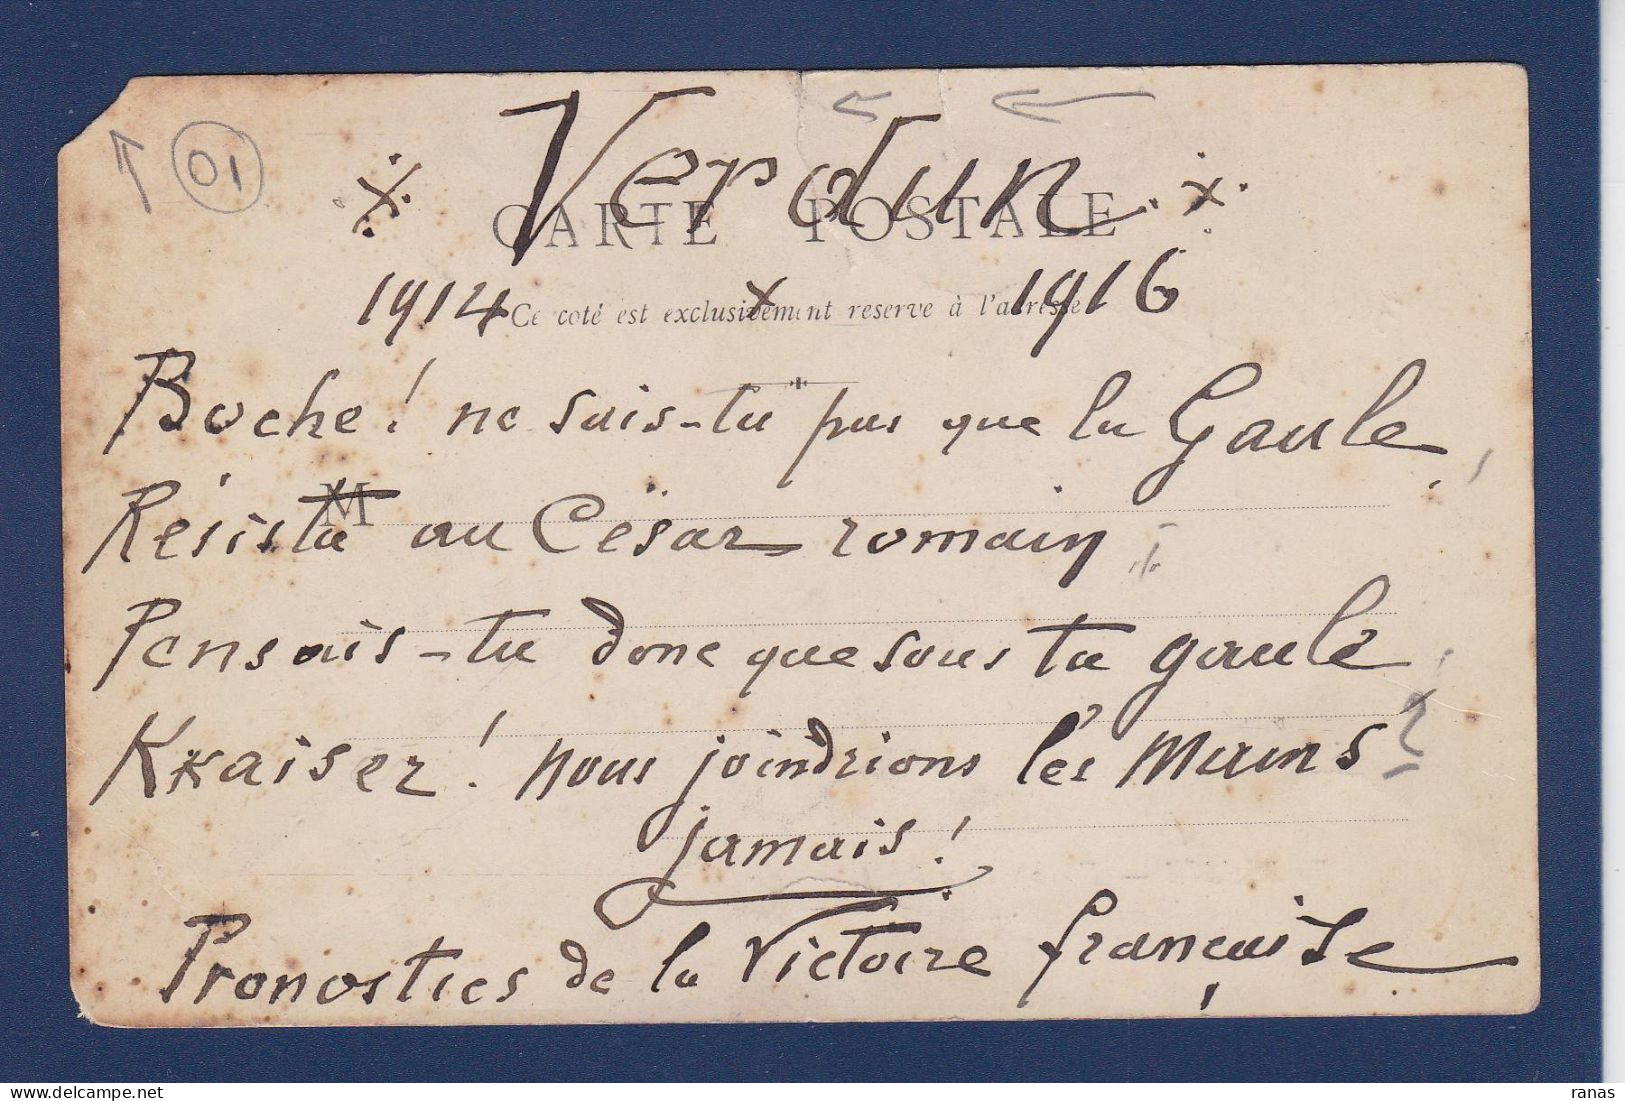 01
Verdun
CARTE POSTALE
1914 x 1916
Ce coté est exclusivement reservé à l'adresse
Boche! ne sais-tu pas que la Gaule,
M
Résista au César romain;
Pensais-tu donc que sous ta gaule,
Kkaiser! nous joindrions les mains?
jamais!
Pronostics de la Victoire française
ranas